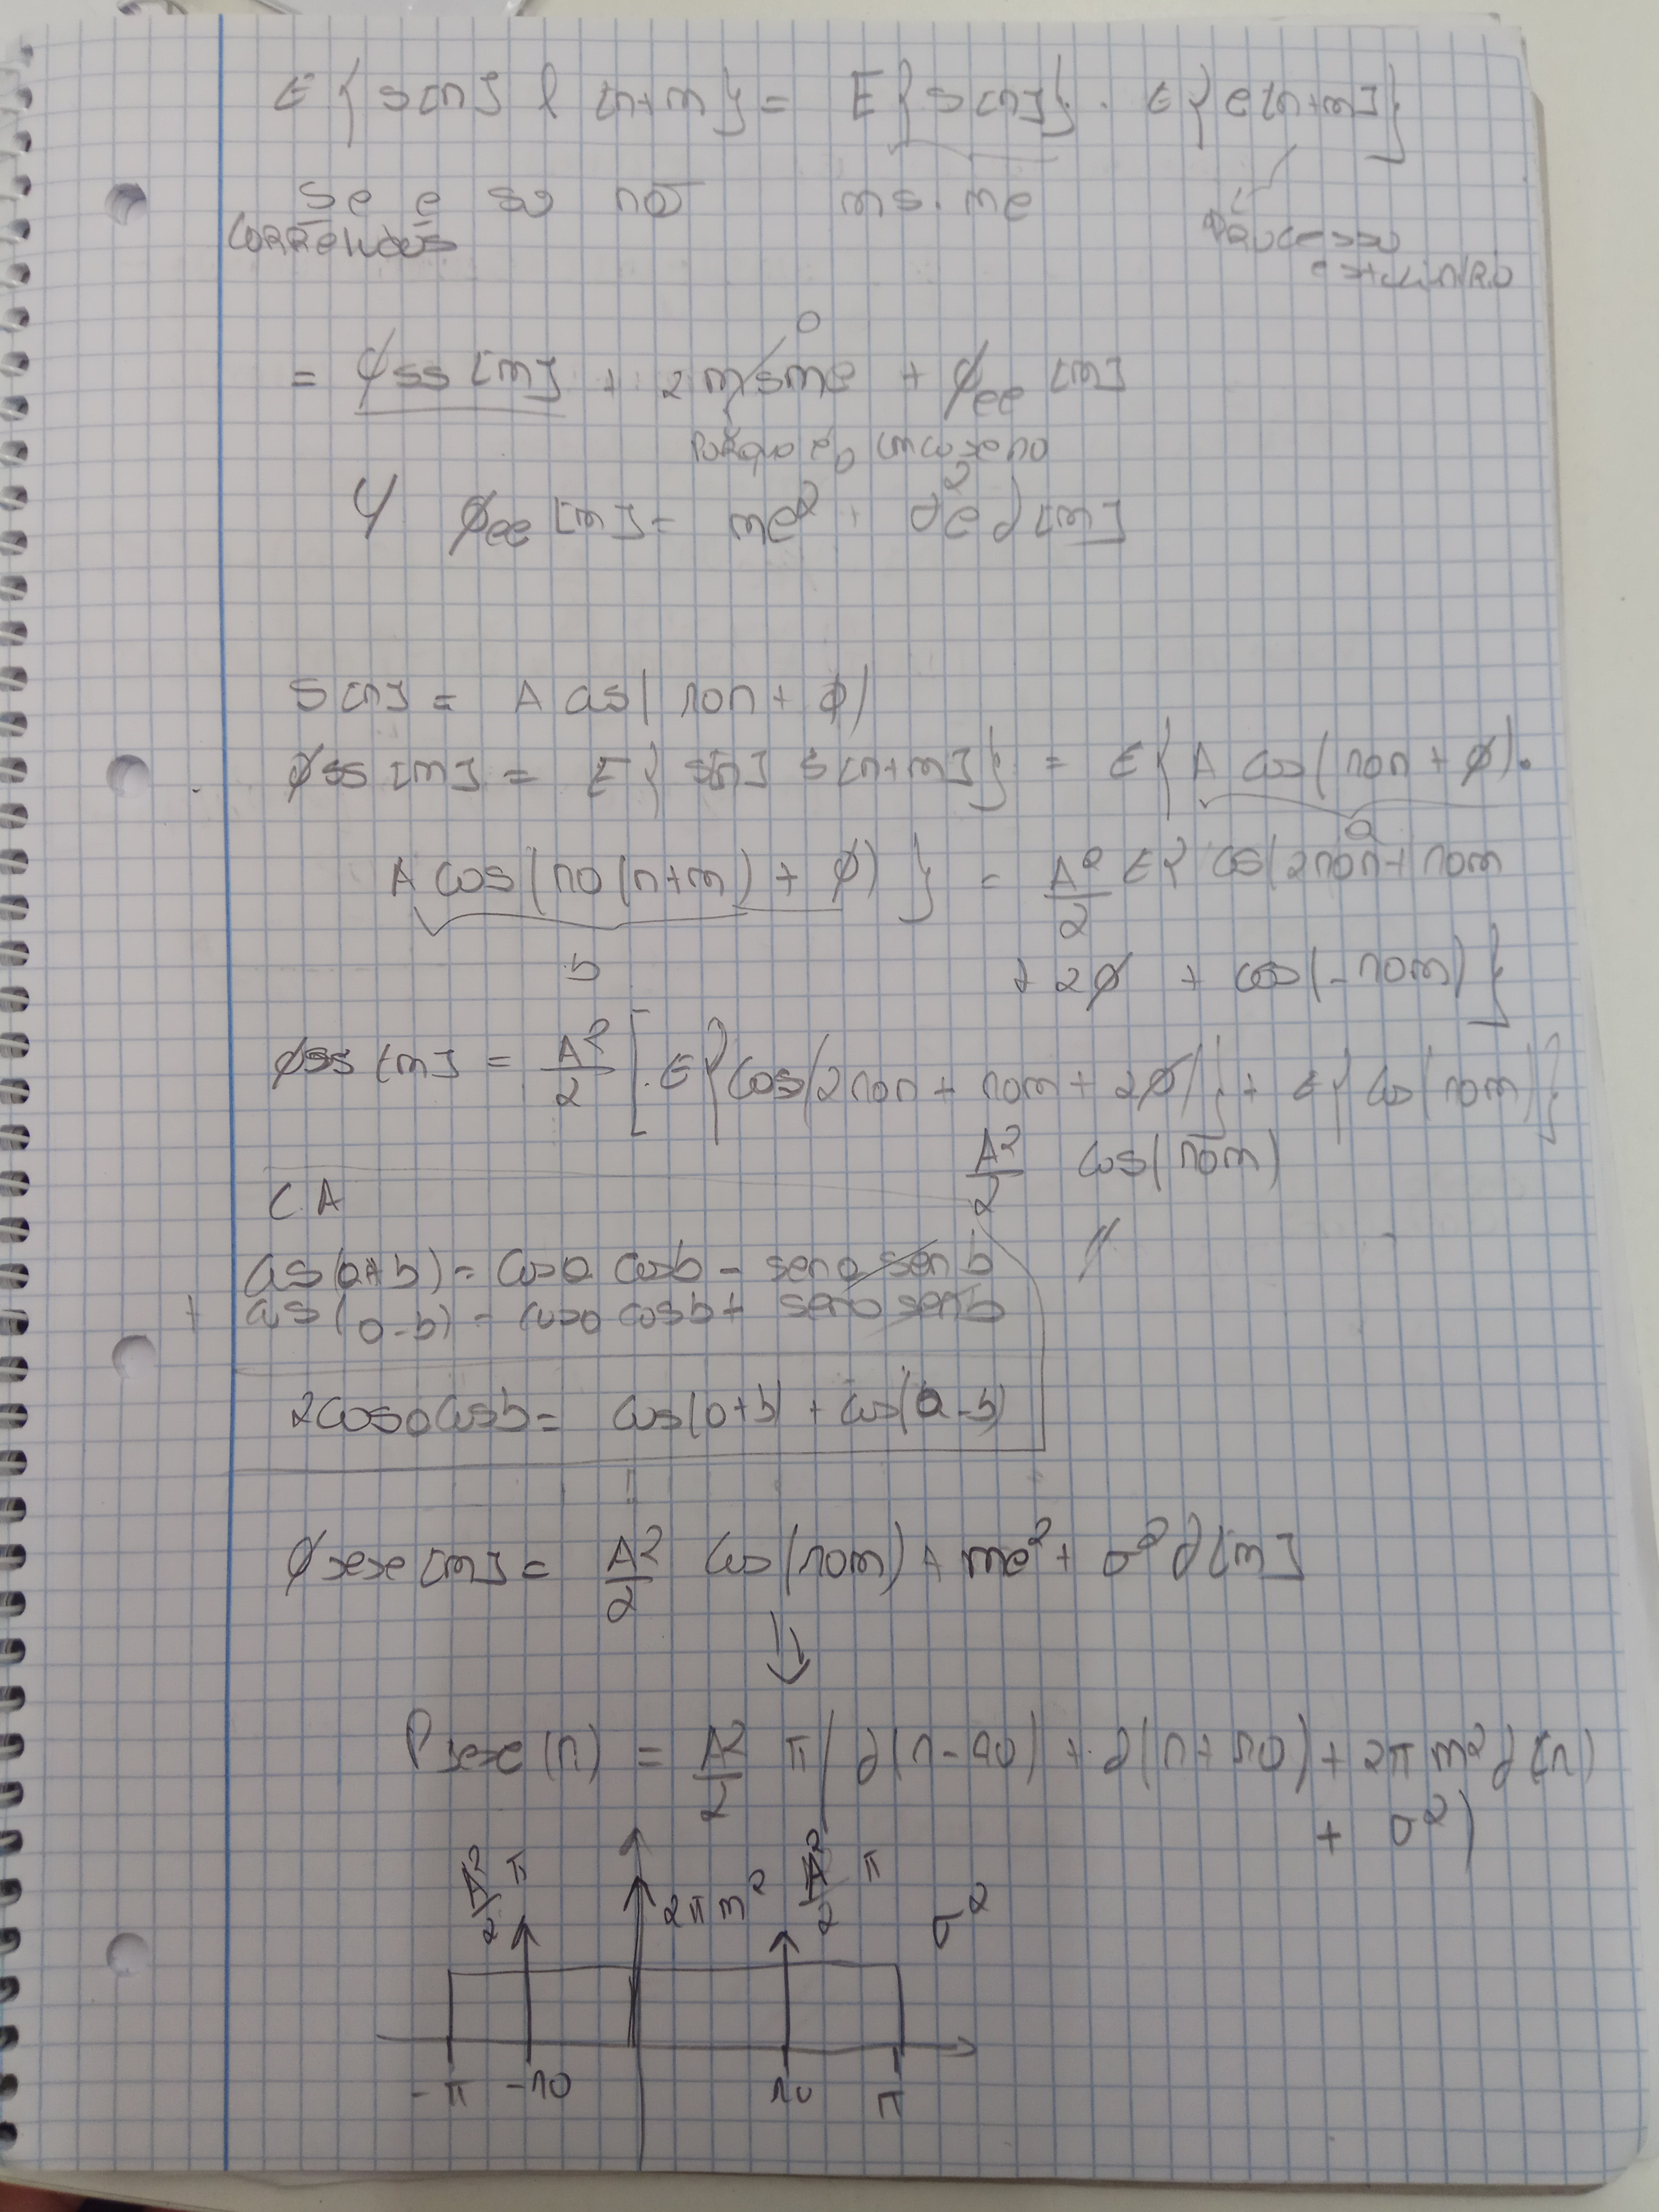 E{s[n] e[n+m]} = E{s[n]} · E{e[n+m]}
Se e so não ms·me
Correlados
Processo
estacionário
0
= ϕss[m] + 2msme + ϕee[m]
Porque é um coseno
4 ϕee[m] = me² + σe² δ[m]
s[n] = A cos(Ωon + ϕ)
ϕss[m] = E{s[n] s[n+m]} = E{A cos(Ωon + ϕ).
a
A cos(Ωo(n+m) + ϕ)} = A²/2 E{cos(2Ωon + Ωom
b
+ 2ϕ + cos(-Ωom)}
ϕss[m] = A²/2 [E{cos(2Ωon + Ωom + 2ϕ)} + E{cos(Ωom)}
A²/2 cos(Ωom)
CA
cos(a+b) = cosa cosb - sena senb
+ cos(a-b) = cosa cosb + sena senb
2cosacosb = cos(a+b) + cos(a-b)
ϕxx[m] = A²/2 cos(Ωom) + me² + σ² δ[m]
⇓
Pxx(Ω) = A²/2 π(δ(Ω-Ωo) + δ(Ω+Ωo) + 2πm²δ(Ω)
+ σ²)
A²/2 π 2πm² A²/2 π σ²
-π -Ωo Ωo π